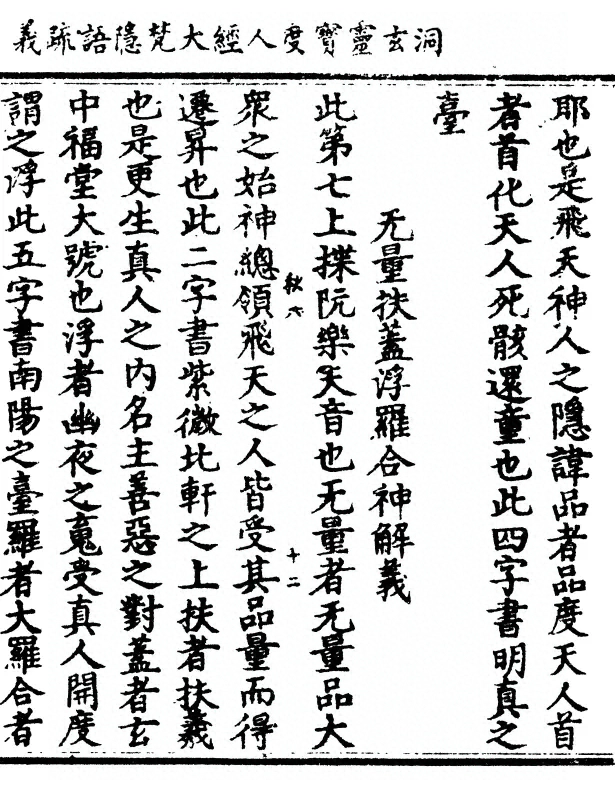 洞玄靈寶度人經大梵隱語疏義
耶也是飛天神人之隱諱品者品度天人首
者首化天人死骸還童也此四字書明真之
臺
无量扶蓋浮羅合神解義
此第七上揲阮樂天音也无量者无量品大
秋六
十二
衆之始神總領飛天之人皆受其品量而得
遷昇也此二字書紫微北軒之上扶者扶義
也是更生真人之内名主善惡之對蓋者玄
中福堂大號也浮者幽夜之䰟受真人開度
謂之浮此五字書南陽之臺羅者大羅合者